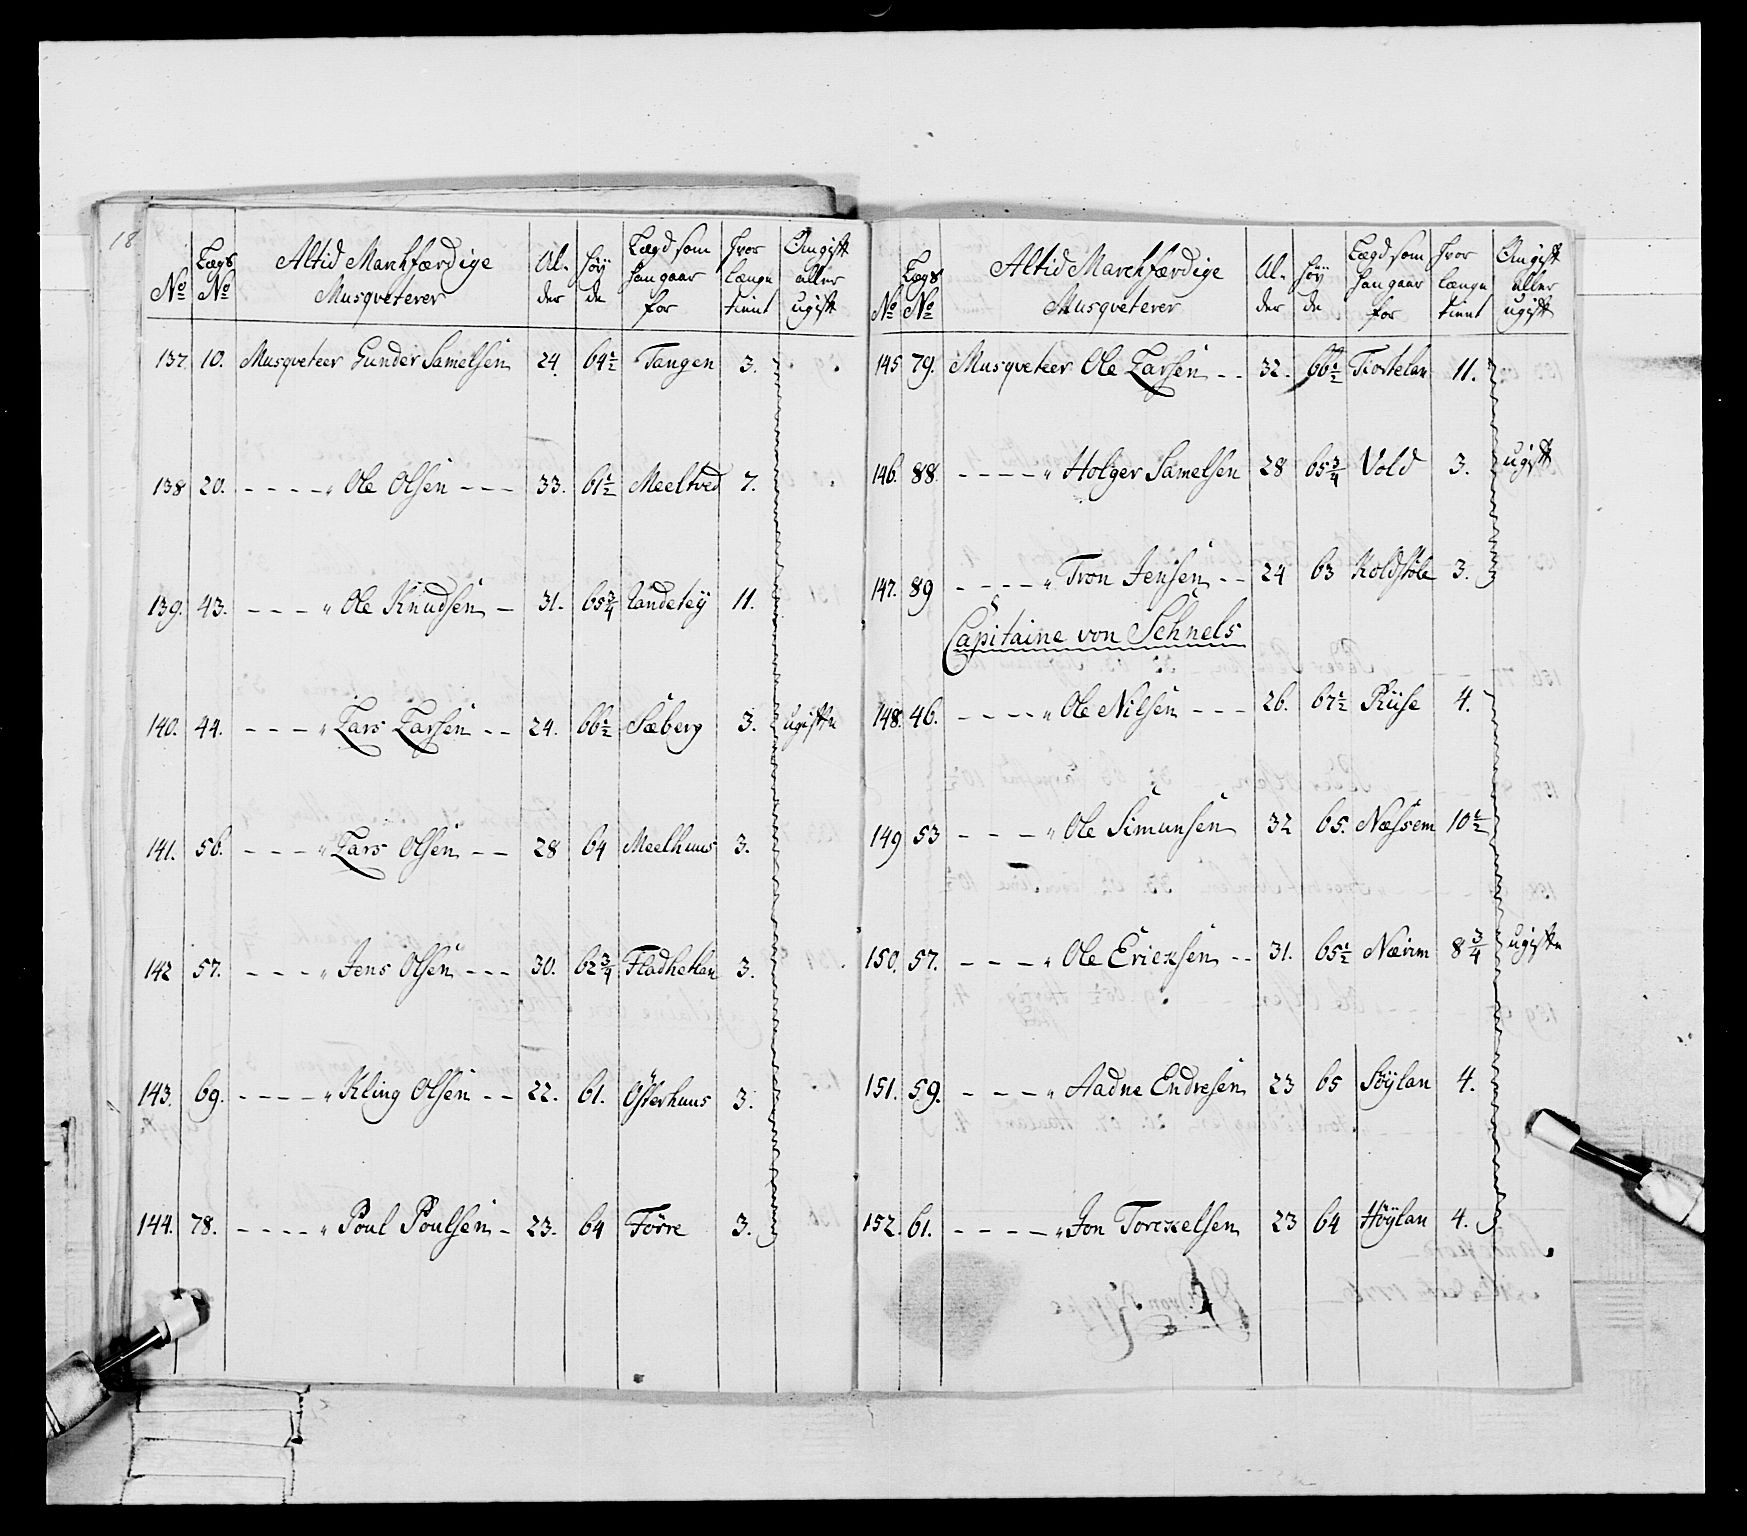 18
No | Lægs No | Altid Marchfærdige Musqveterer | Alder | Høyde | Lægd som han gaar for | Hvor længe tient | Om gift eller ugift
137. 10. Musqveteer Gunder Samelsen 24. 64½ Tangen 3.
138 20. - - - - „ Ole Olsen - - - 33. 61½ Meeltved 7.
139. 43. - - - „ Ole Knudsen - 31. 65¾ Landetey 11.
140. 44. - - - „ Lars Larsen - - 24. 66½ Sæberg 3. ugifte
141. 56. - - - „ Lars Olsen - - 28 64 Meelhuus 3.
142 57. - - - „ Jens Olsen - - - 30. 62¾ Fladhetlan 3.
143. 69. - - - - „ Kling Olsen - - 22. 61. Østerhuus 3.
144. 78. - - - - „ Poul Poulsen - 23. 64 Førre 3.
No | Lægs No | Altid Marchfærdige Musqveterer | Alder | Høyde | Lægd som han gaar for | Hvor længe tient | Om gift eller ugift
145 79. Musqveteer Ole Larsen - - 32. 66½ Tiostelan 11.
146. 88. - - - - „ Holger Samelsen 28 65¾ Vold 3. ugift
147. 89 - - - - „ Tron Jensen - - 24 63 Koldstøle 3.
Capitaine von Schnels
148. 46. - - - - „ Ole Nilsen - - - 26. 67½ Riise 4.
149 53 - - - „ Ole Simunsen 32 65. Næssem 10½
150. 57. - - - „ Ole Ericksen - - 31. 65½ Nærim 8¾ ugifte
151. 59. - - - „ Aadne Endresen 23 65 Søylan 4.
152. 61. - - - - „ Jon Torckelsen 23 64 Høylan 4.